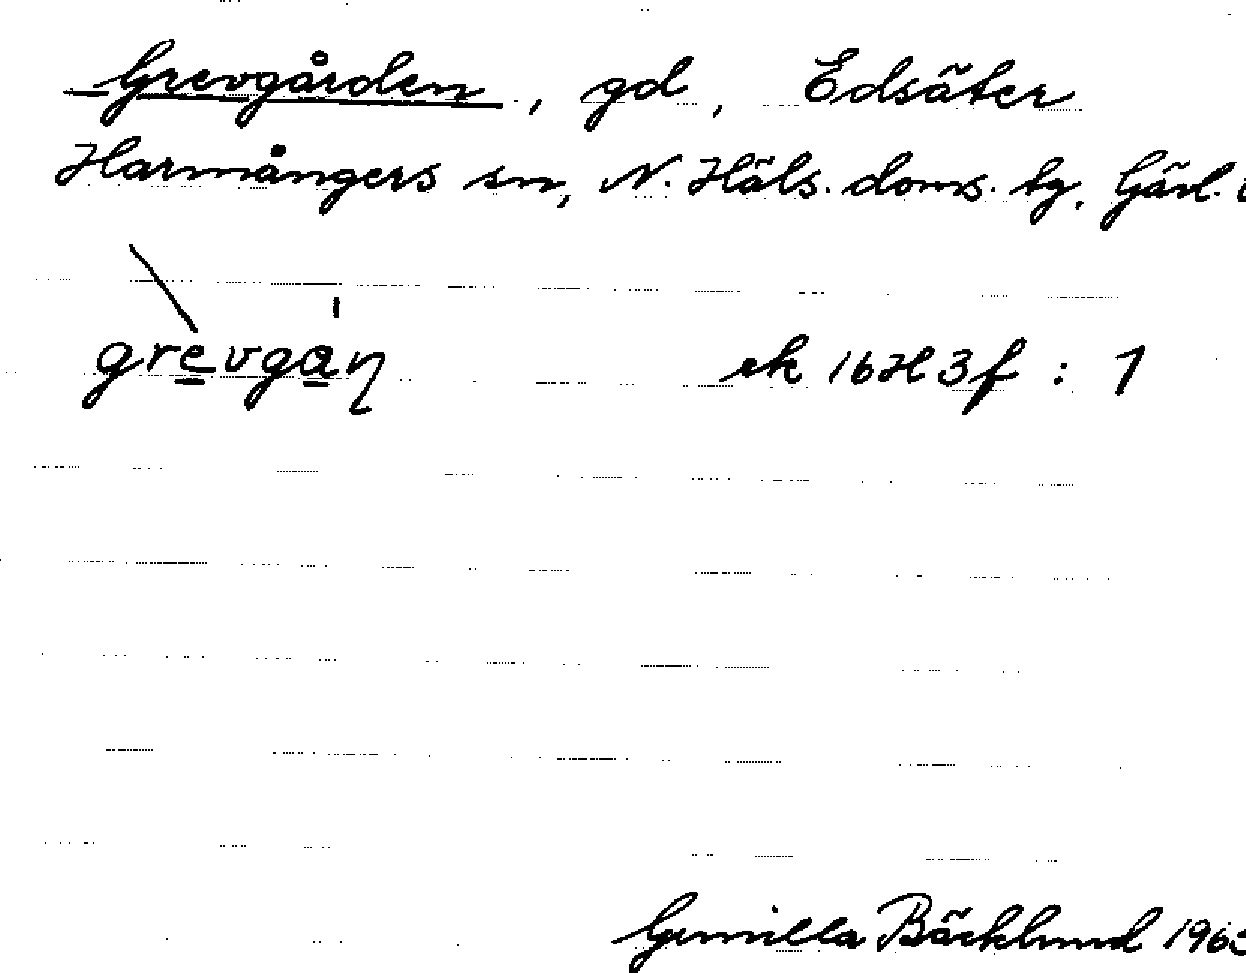 Grevgården, gd, Edsäter
Harmångers sn, N. Häls. doms. tg. Gävl.
grevgàn̩ ek 16H3f : 1
Gunilla Bäcklund